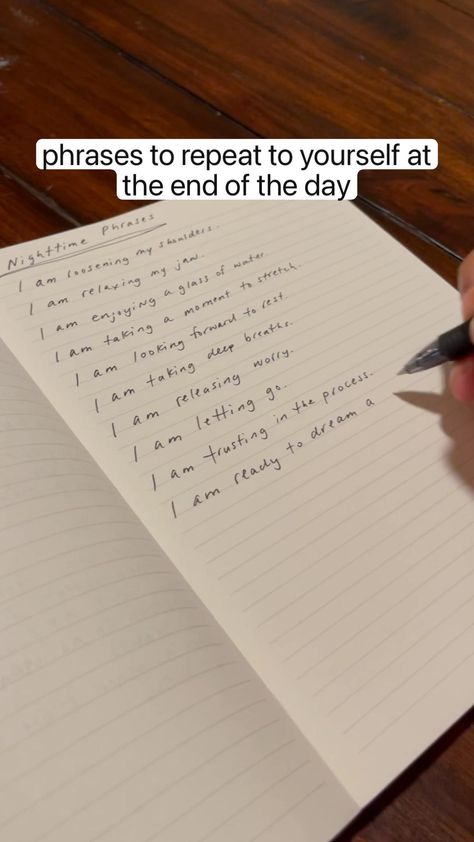 phrases to repeat to yourself at
the end of the day
Nighttime Phrases
I am loosening my shoulders.
I am relaxing my jaw.
I am enjoying a glass of water.
I am taking a moment to stretch.
I am looking forward to rest.
I am taking deep breaths.
I am releasing worry.
I am letting go.
I am trusting in the process.
I am ready to dream a